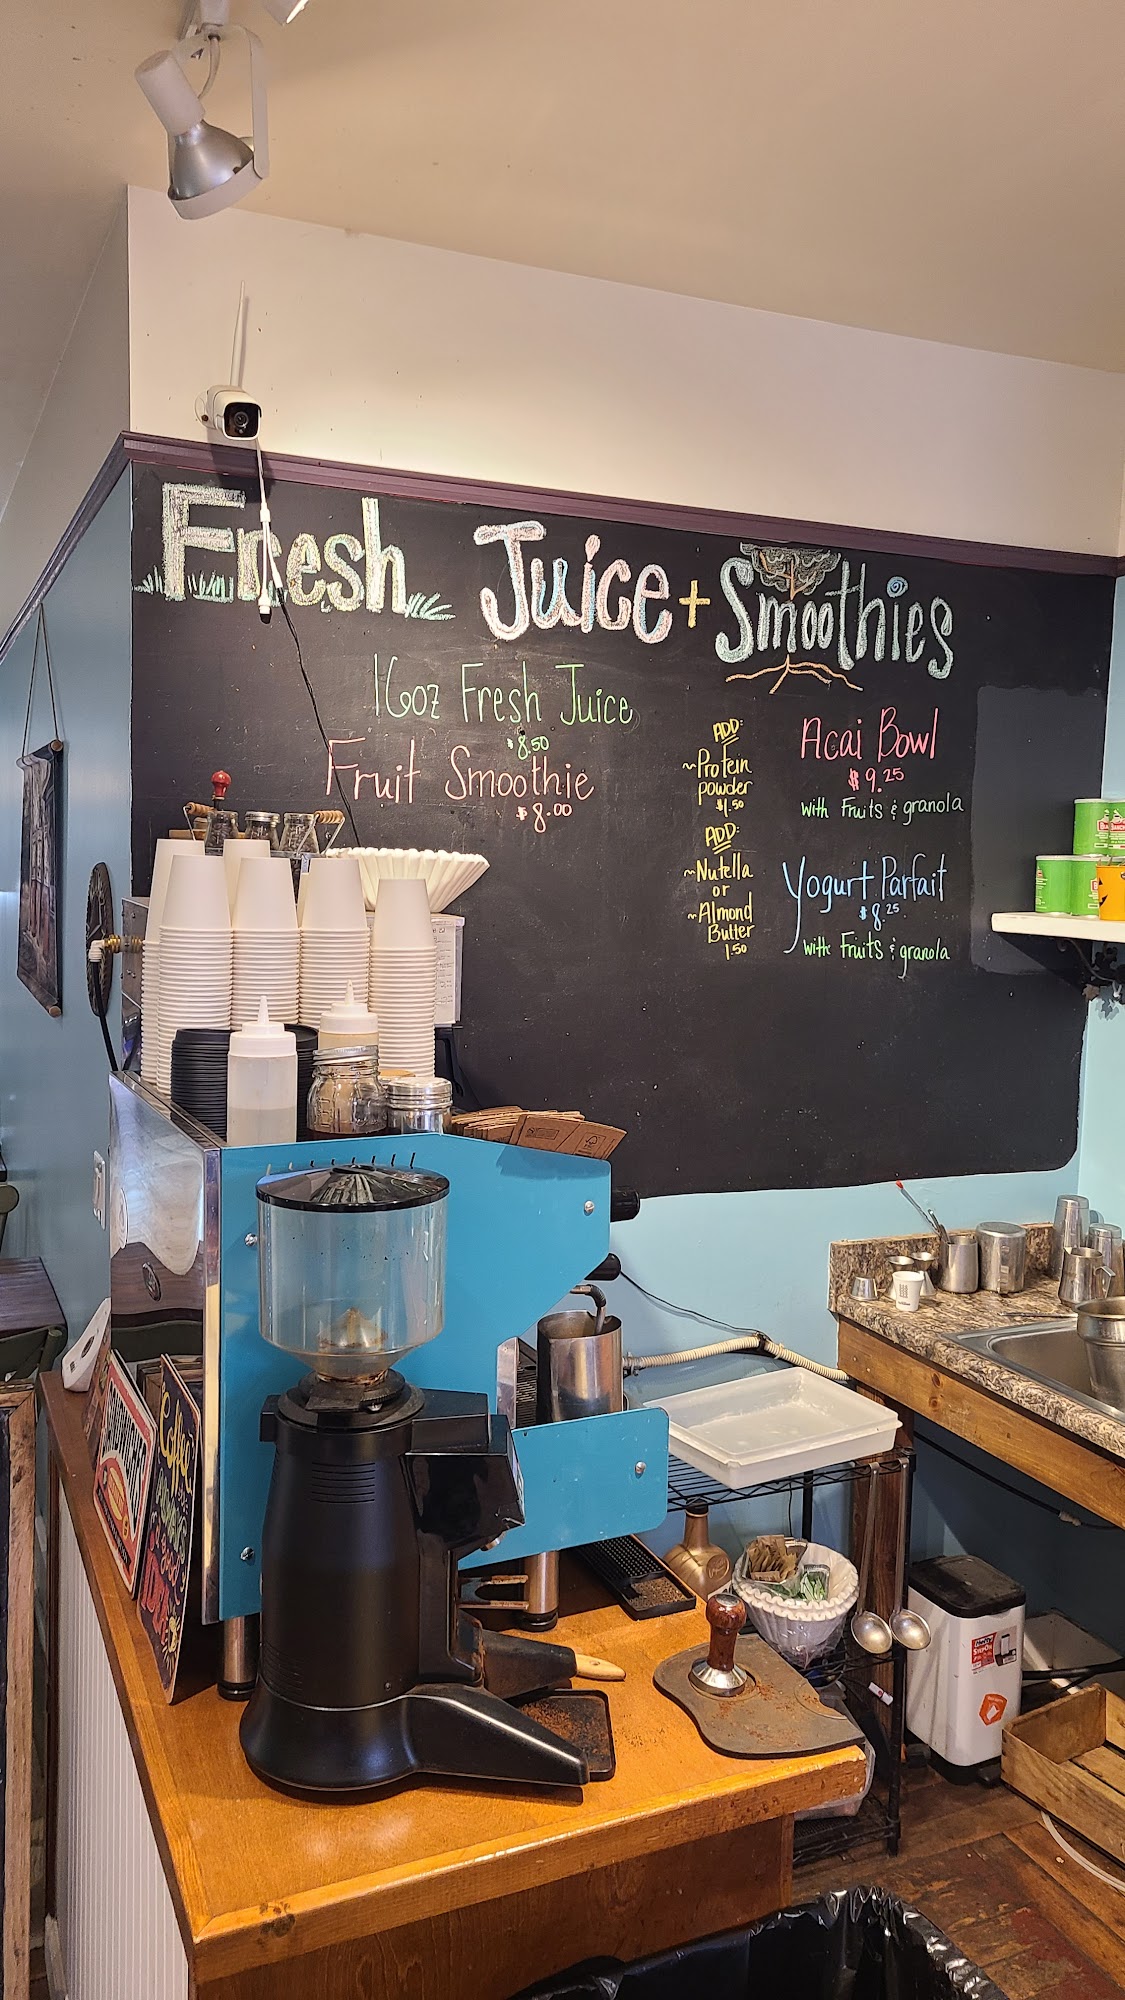 Fresh Juice + Smoothies
16oz Fresh Juice
$8.50
Fruit Smoothie
$8.00
ADD:
~Protein
powder
$1.50
ADD:
~Nutella
or
~Almond
Butter
1.50
Acai Bowl
$9.25
with Fruits & granola
Yogurt Parfait
$8.25
with Fruits & granola
Coffee